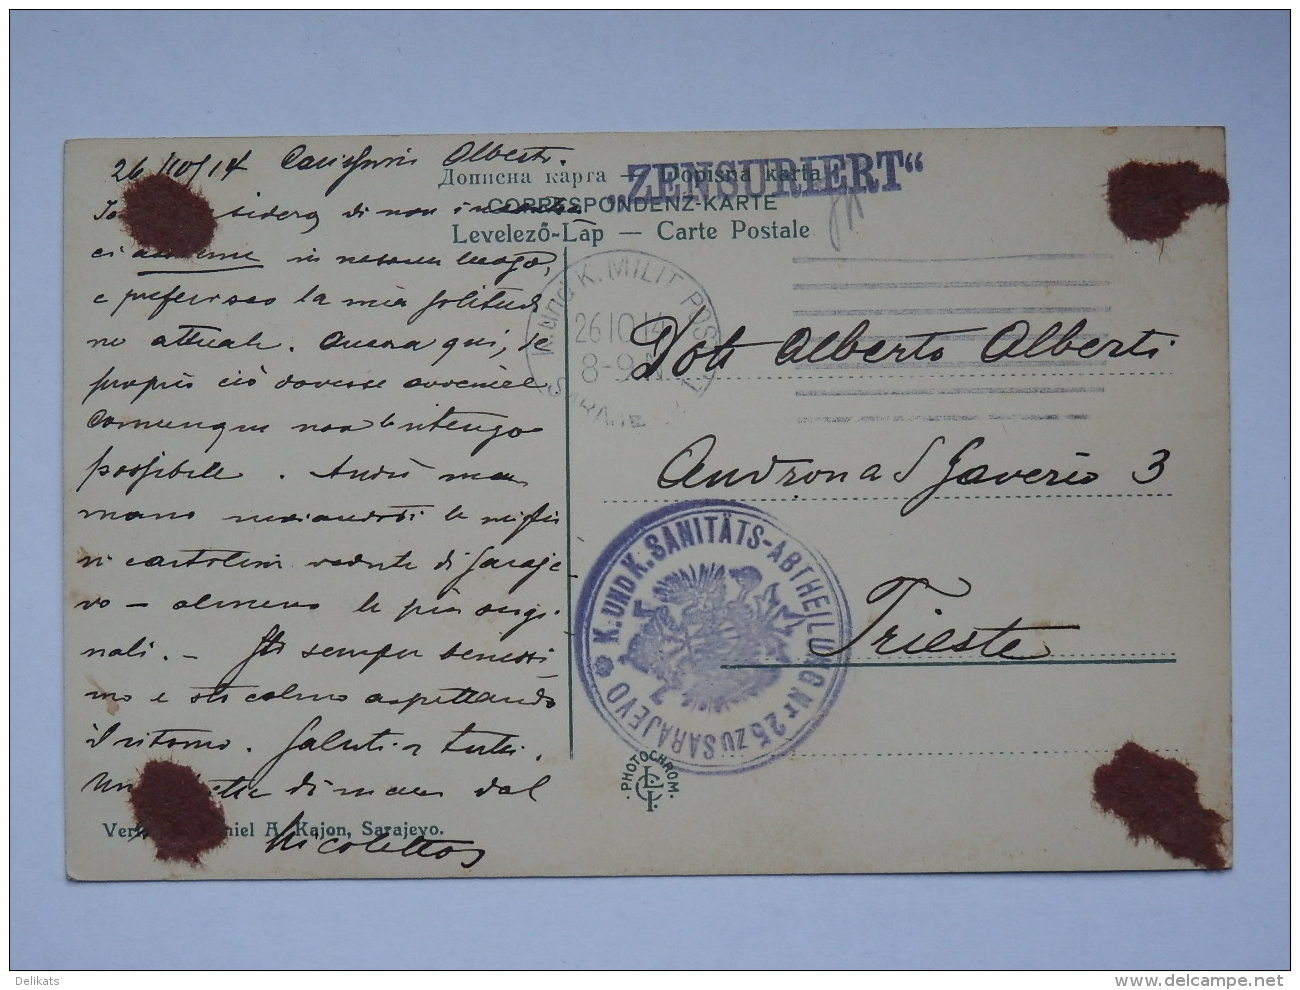 26/10/14 Carissimi Alberti.
Дописна карта — Dopisna karta
„ZENSURIERT“
CORRESPONDENZ-KARTE
Levelező-Lap — Carte Postale
di non
ci in nessun luogo,
e preferisco la mia solitudi
ne attuale. Ancora qui, se
proprio ciò dovesse avvenire
comunque non lo ritengo
possibile. Andrò man
mano inviandovi le miglio
ri cartoline vedute di Saraje
vo — almeno le più origi
nali. — Sto sempre benissi
mo e sto calmo aspettando
il ritorno. Saluti a tutti.
Una di mano dal
Nicolettos
K. und K. MILIT. POST
26 10 14
8-9 N
SARAJEVO
Dott Alberto Alberti
Androna S Saverio 3
Trieste
K. UND K. SANITÄTS-ABTHEILUNG Nr 25 ZU SARAJEVO
PHOTOCHROM.
Daniel A. Kajon, Sarajevo.
Delikats
www.delcampe.net